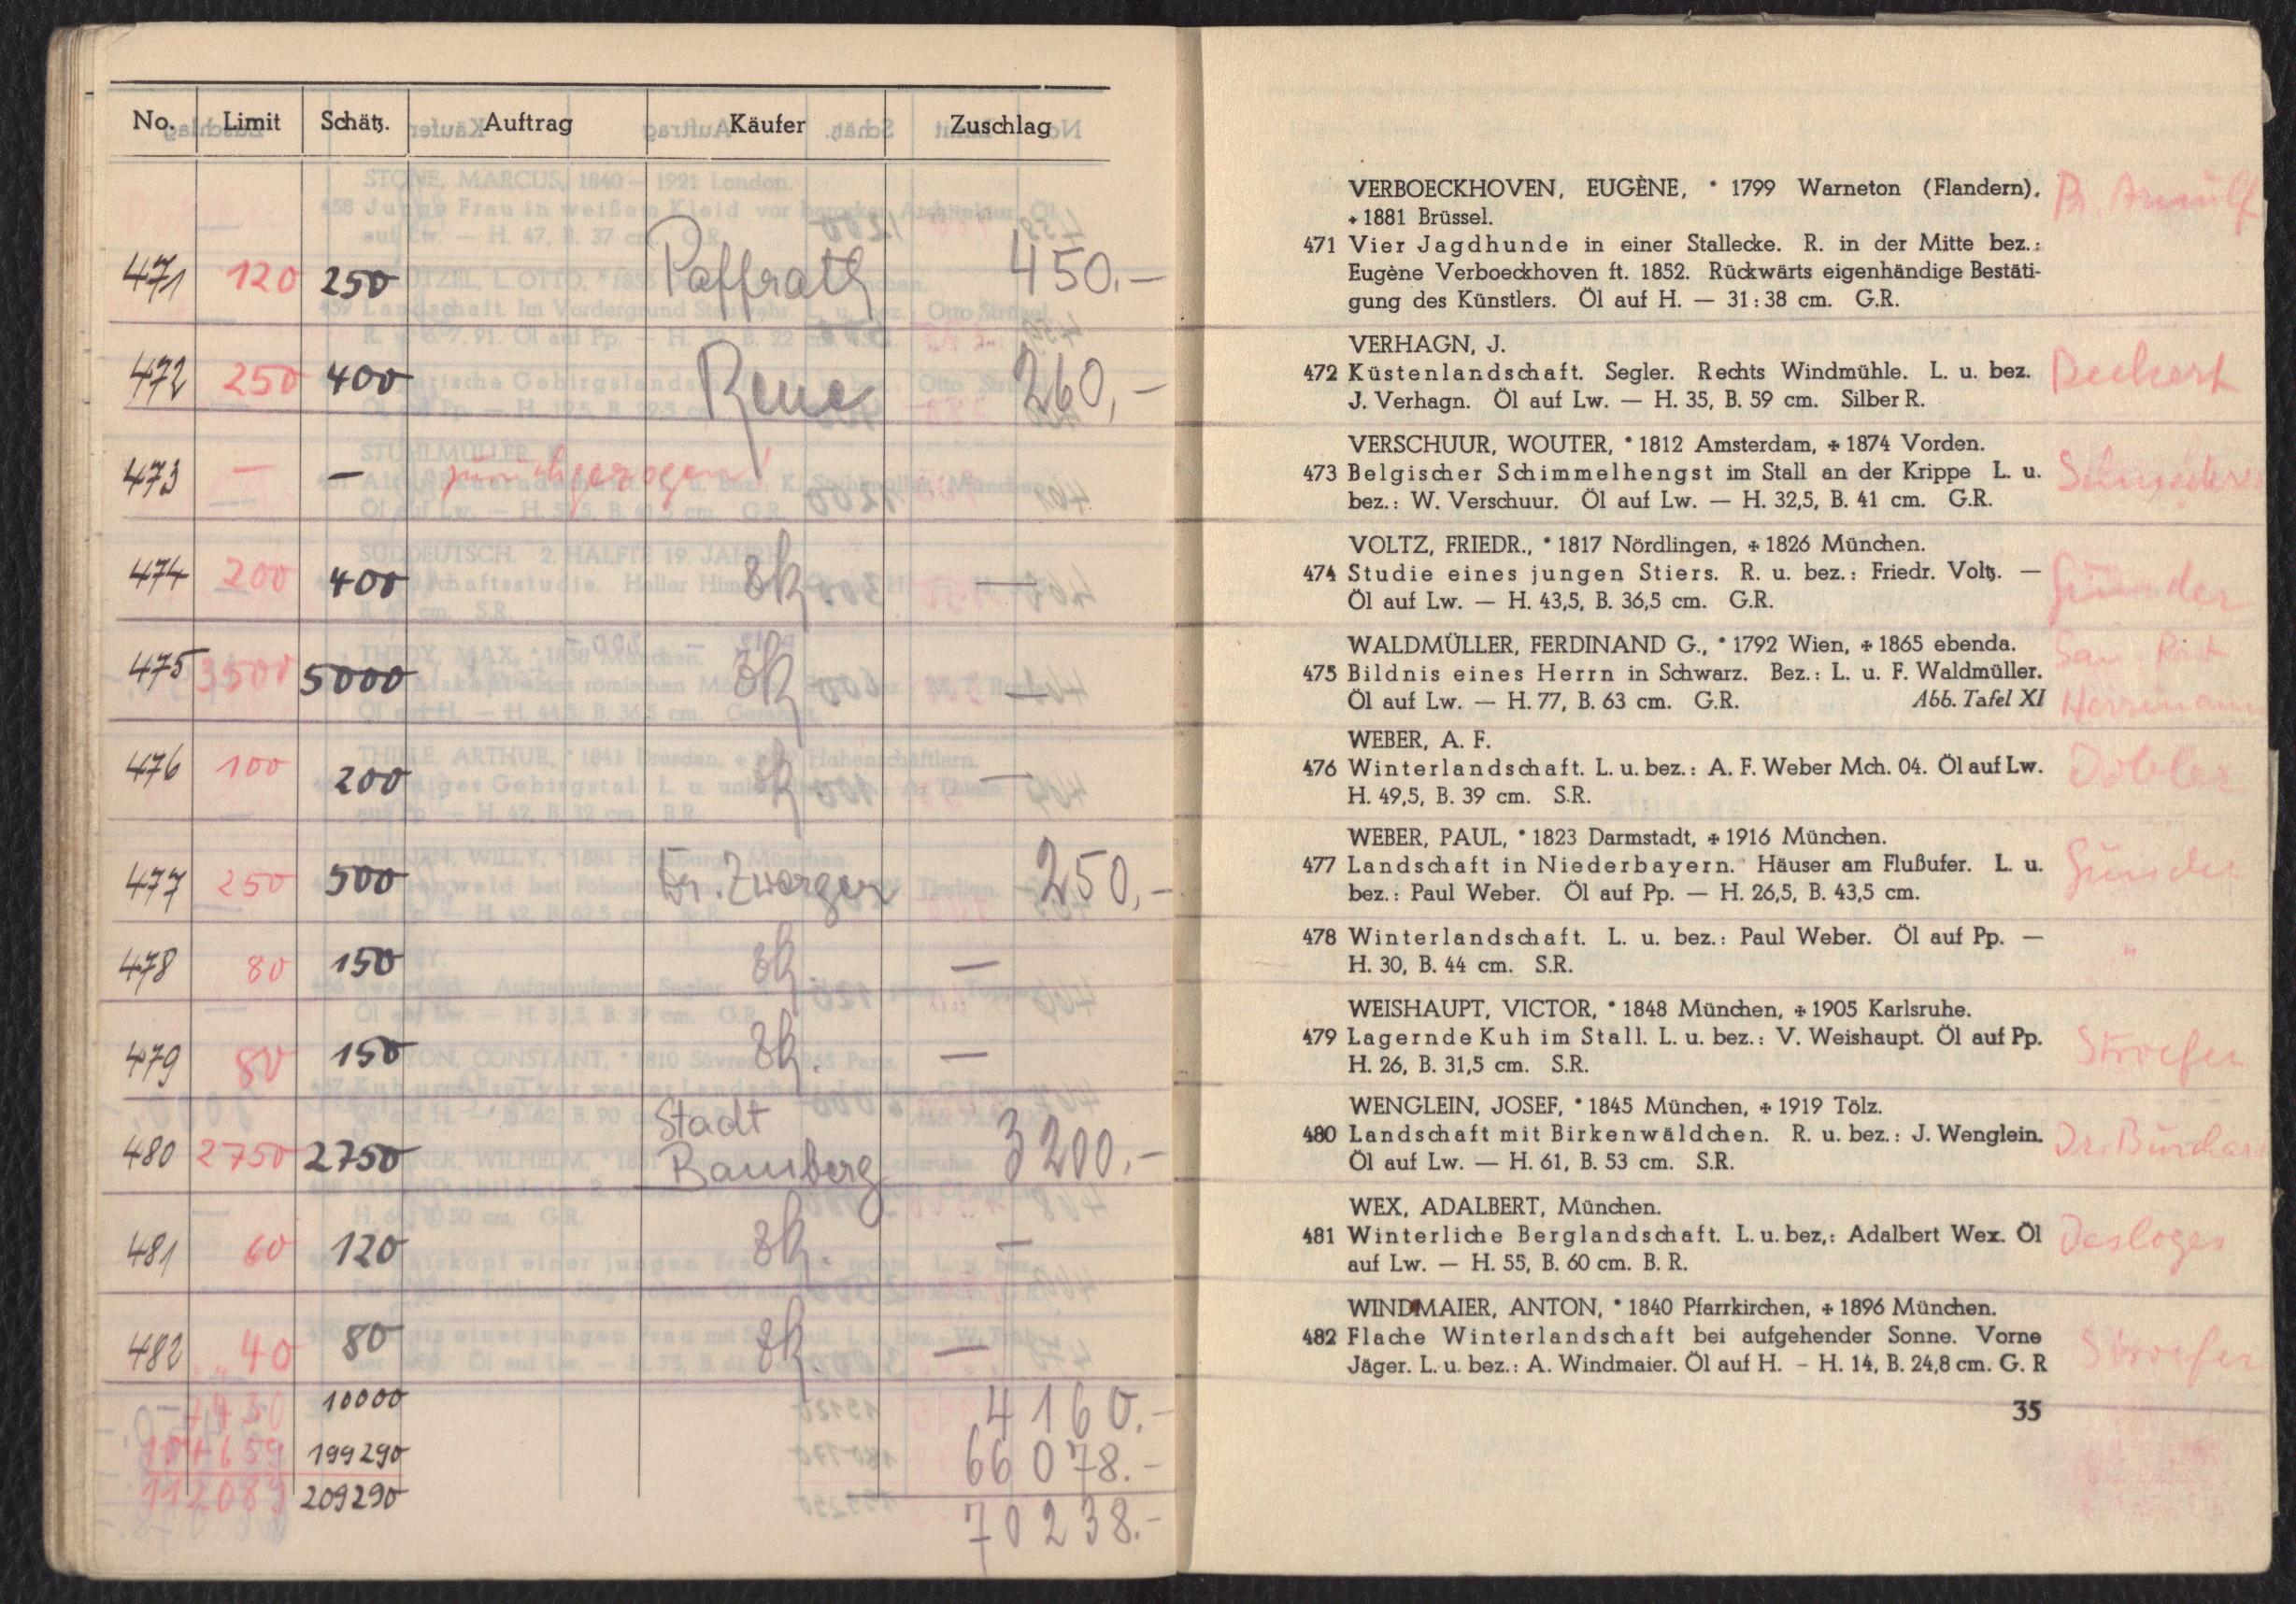 No. Limit Schätz. Auftrag Käufer Zuschlag
471 120 250 Paffrath 450.-
472 250 400 Rene 260,-
473 — — zurückgezogen!
474 200 400 —
475 3500 5000 —
476 100 200 —
477 250 500 Dr. Zwerger 250,-
478 80 150 —
479 80 150 —
Stadt
480 2750 2750 Bamberg 3200.-
481 60 120 —
482 40 80 —
7430 10000 4160.-
104659 199290 66078.-
112089 209290
70238.-
VERBOECKHOVEN, EUGÈNE, * 1799 Warneton (Flandern), Pr Arnulf
+ 1881 Brüssel.
471 Vier Jagdhunde in einer Stallecke. R. in der Mitte bez.:
Eugène Verboeckhoven ft. 1852. Rückwärts eigenhändige Bestäti-
gung des Künstlers. Öl auf H. — 31:38 cm. G.R.
VERHAGN, J.
472 Küstenlandschaft. Segler. Rechts Windmühle. L. u. bez. Deckert
J. Verhagn. Öl auf Lw. — H. 35, B. 59 cm. Silber R.
VERSCHUUR, WOUTER, * 1812 Amsterdam, + 1874 Vorden.
473 Belgischer Schimmelhengst im Stall an der Krippe L. u.
bez.: W. Verschuur. Öl auf Lw. — H. 32,5, B. 41 cm. G.R.
VOLTZ, FRIEDR., * 1817 Nördlingen, + 1826 München.
474 Studie eines jungen Stiers. R. u. bez.: Friedr. Voltz. — Günder
Öl auf Lw. — H. 43,5, B. 36,5 cm. G.R.
WALDMÜLLER, FERDINAND G., * 1792 Wien, + 1865 ebenda.
475 Bildnis eines Herrn in Schwarz. Bez.: L. u. F. Waldmüller.
Öl auf Lw. — H. 77, B. 63 cm. G.R. Abb. Tafel XI Herrmann
WEBER, A. F.
476 Winterlandschaft. L. u. bez.: A. F. Weber Mch. 04. Öl auf Lw. Döbler
H. 49,5, B. 39 cm. S.R.
WEBER, PAUL, * 1823 Darmstadt, + 1916 München.
477 Landschaft in Niederbayern. Häuser am Flußufer. L. u. Günder
bez.: Paul Weber. Öl auf Pp. — H. 26,5, B. 43,5 cm.
478 Winterlandschaft. L. u. bez.: Paul Weber. Öl auf Pp. — "
H. 30, B. 44 cm. S.R.
WEISHAUPT, VICTOR, * 1848 München, + 1905 Karlsruhe.
479 Lagernde Kuh im Stall. L. u. bez.: V. Weishaupt. Öl auf Pp. Stroefer
H. 26, B. 31,5 cm. S.R.
WENGLEIN, JOSEF, * 1845 München, + 1919 Tölz.
480 Landschaft mit Birkenwäldchen. R. u. bez.: J. Wenglein. Dr. Burchar
Öl auf Lw. — H. 61, B. 53 cm. S.R.
WEX, ADALBERT, München.
481 Winterliche Berglandschaft. L. u. bez,: Adalbert Wex. Öl Desloges
auf Lw. — H. 55, B. 60 cm. B. R.
WINDMAIER, ANTON, * 1840 Pfarrkirchen, + 1896 München.
482 Flache Winterlandschaft bei aufgehender Sonne. Vorne Stroefer
Jäger. L. u. bez.: A. Windmaier. Öl auf H. - H. 14, B. 24,8 cm. G. R
35